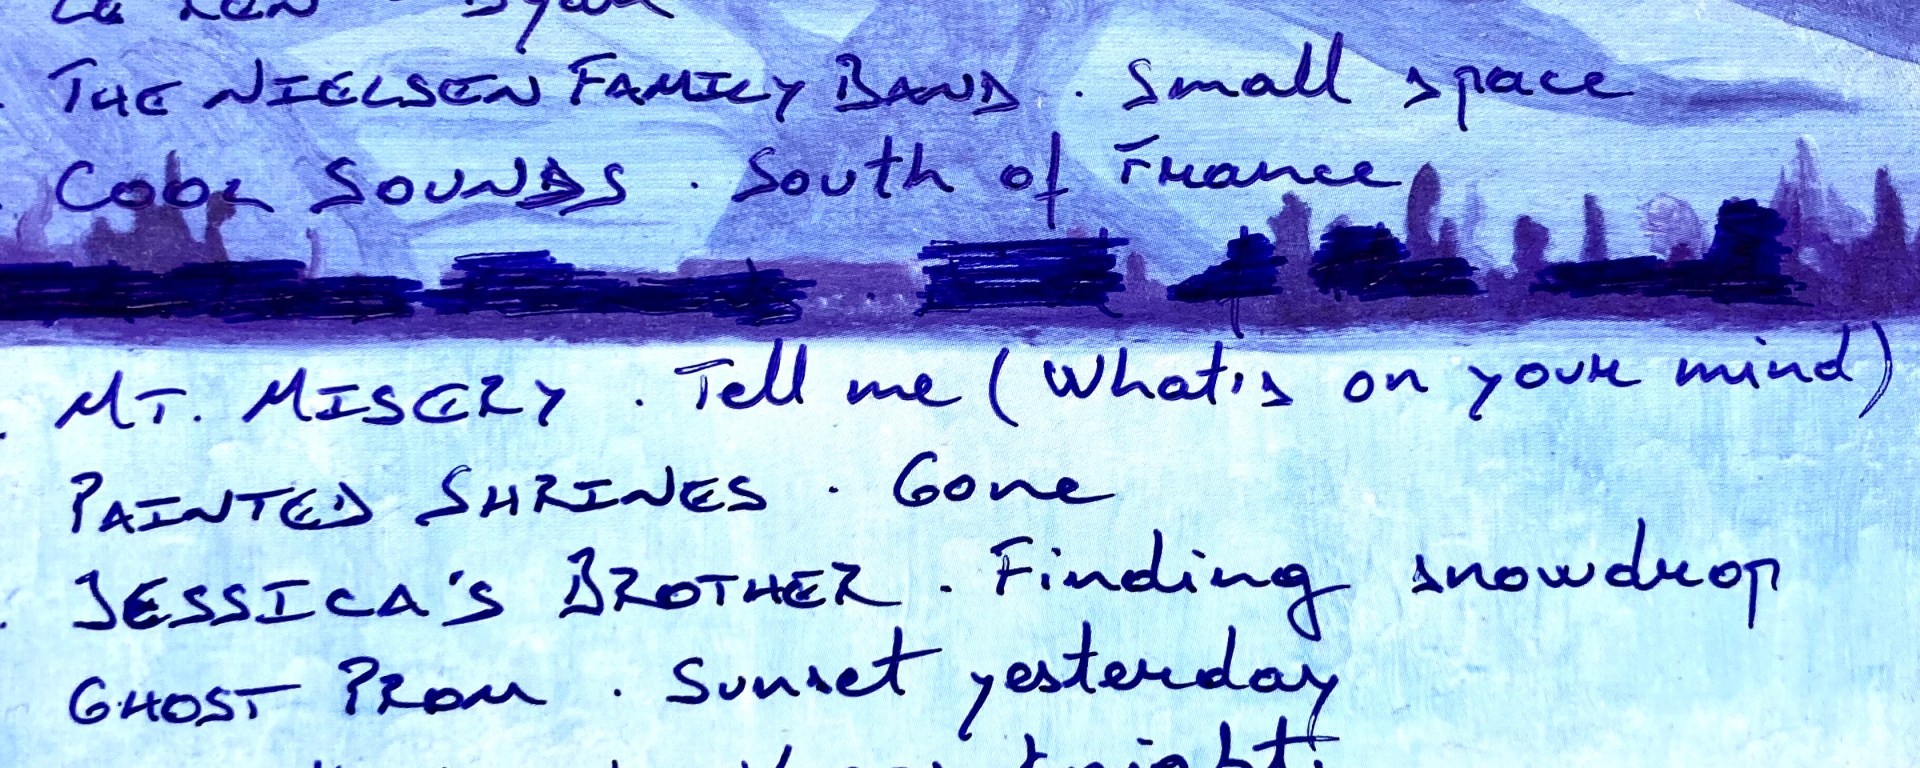 LE REN . Dyan
THE NIELSEN FAMILY BAND . Small space
COOL SOUNDS . South of France
MT. MISERY . Tell me (What's on your mind)
PAINTED SHRINES . Gone
JESSICA'S BROTHER . Finding snowdrop
GHOST PROM . Sunset yesterday